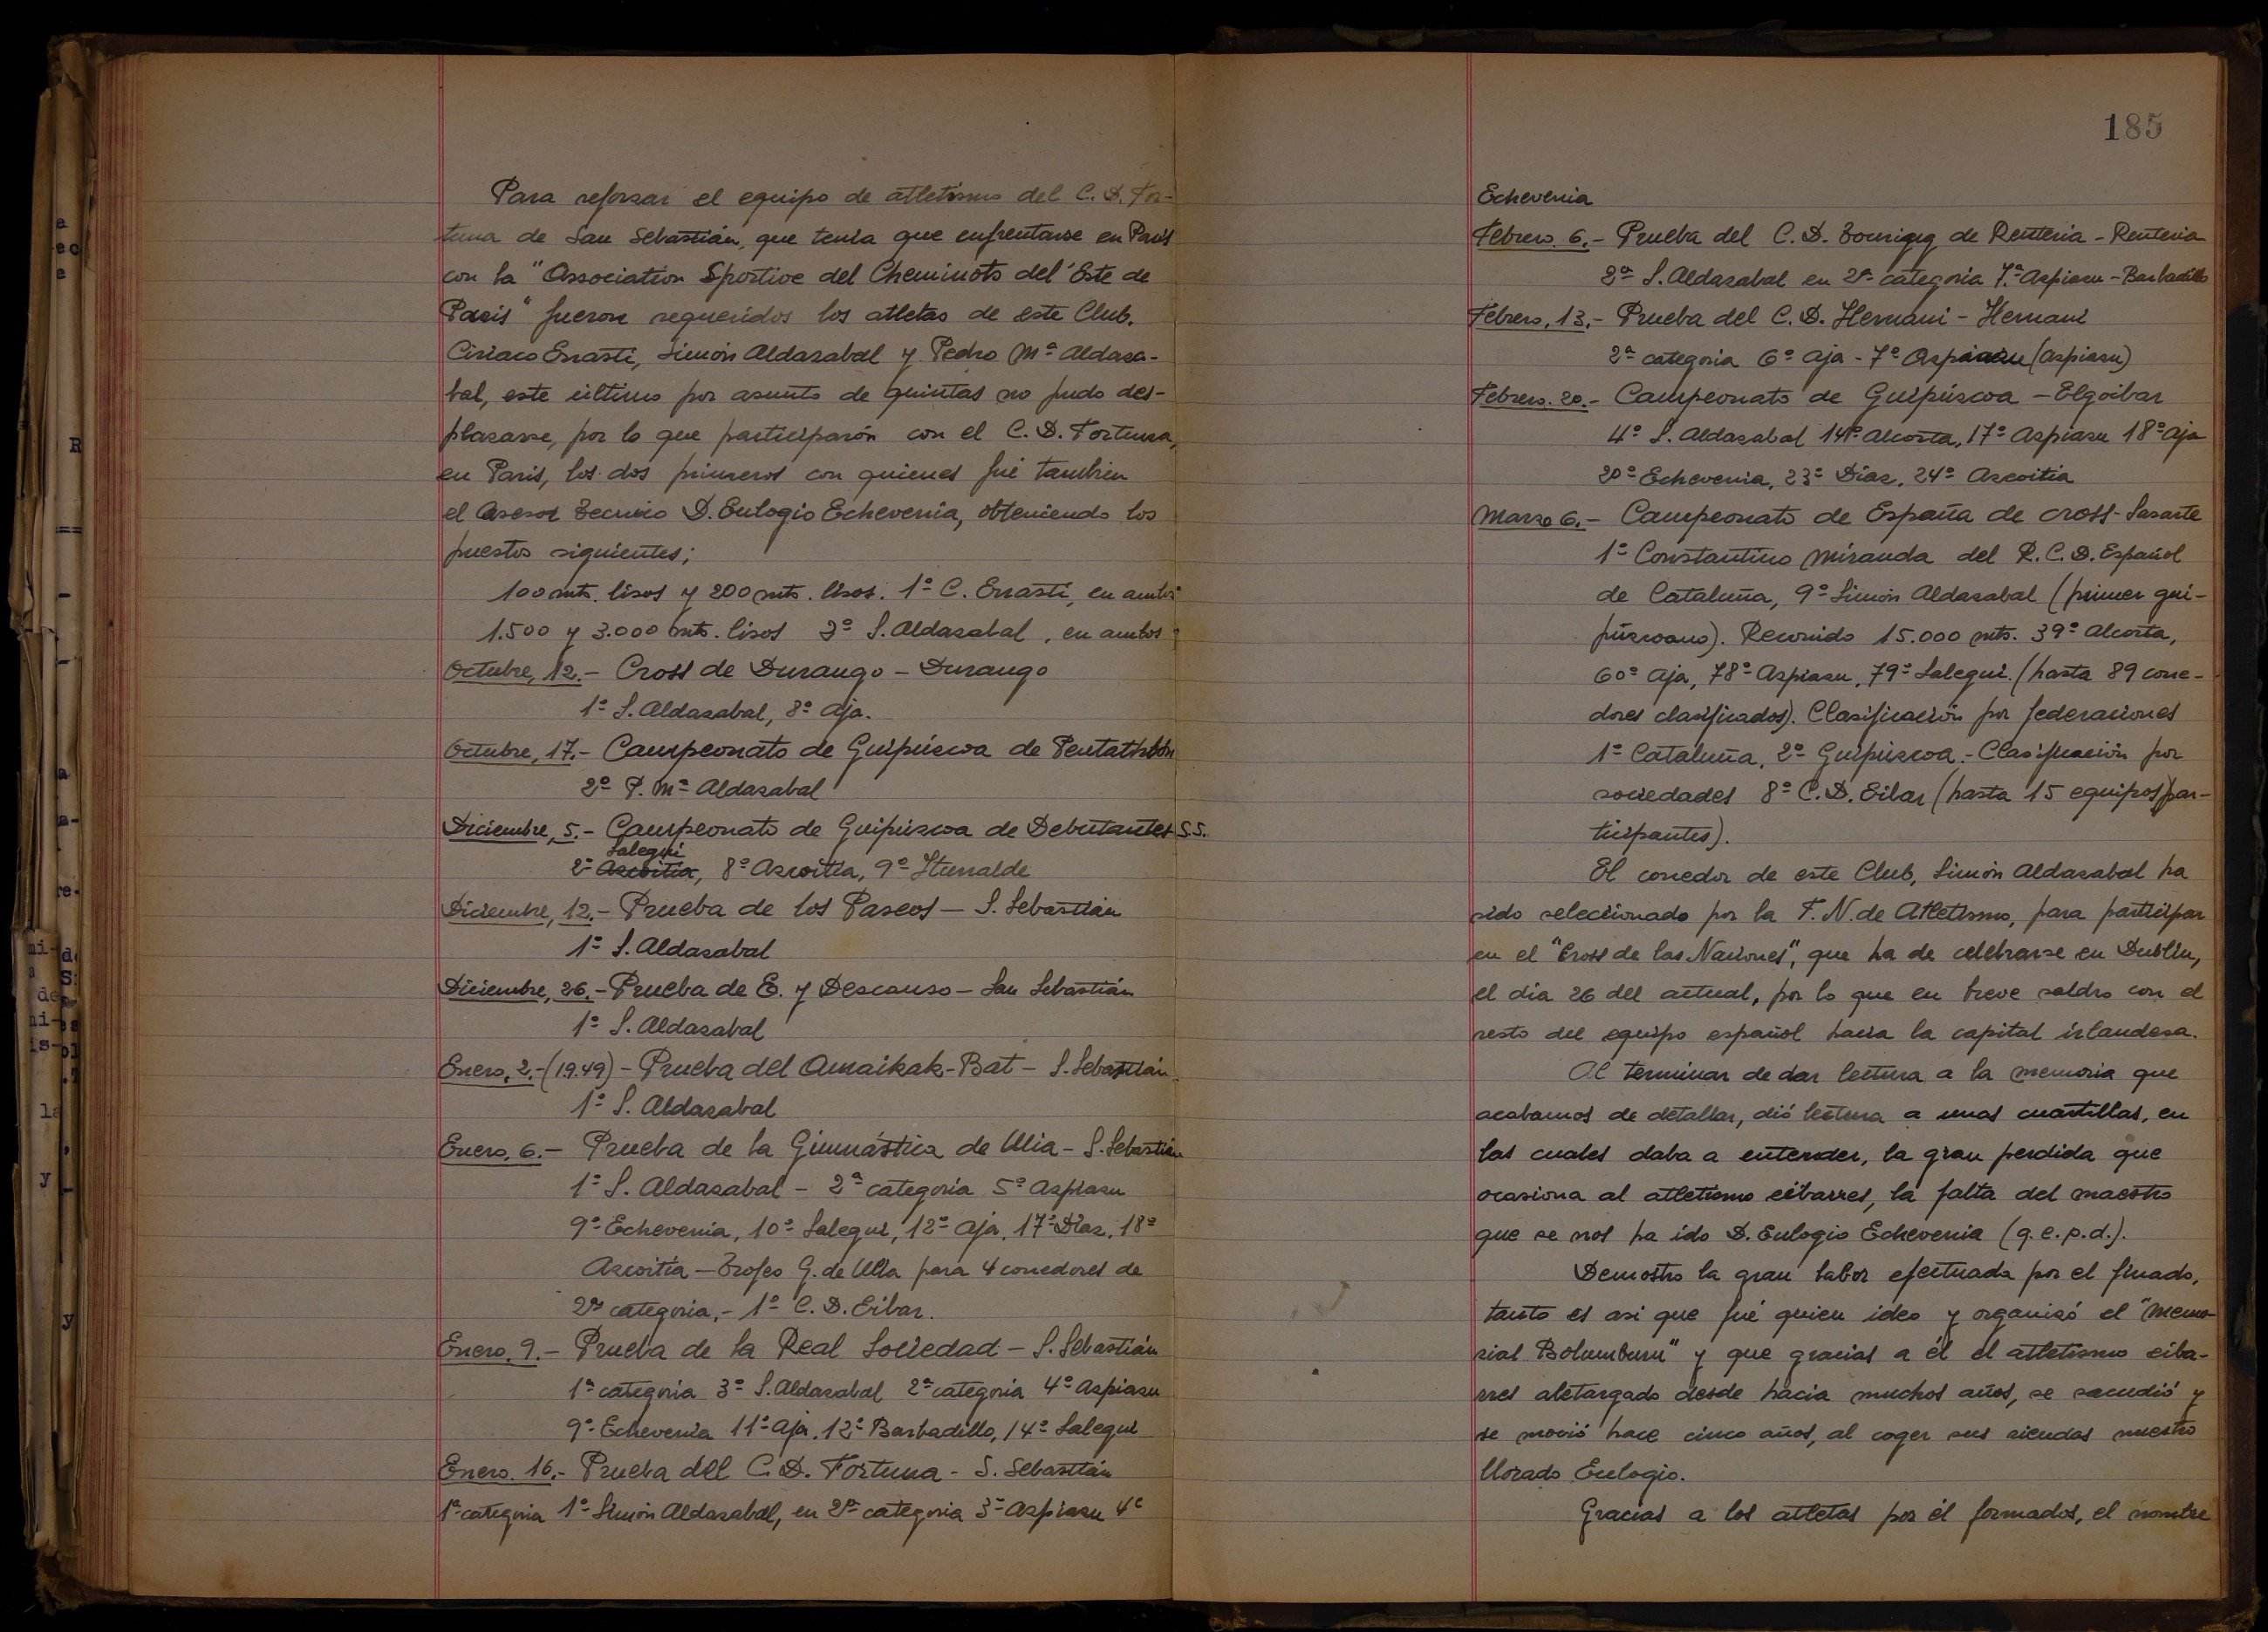 Para reforzar el equipo de atletismo del C. D. For-
tuna de San Sebastián, que tenia que enfrentarse en Paris
con la "Association Sportive del Cheminots del'Este de
Paris" fueron requeridos los atletas de este Club.
Ciriaco Errasti, Simón Aldazabal y Pedro Mª Aldaza-
bal, este último por asunto de quintas no pudo des-
plazarse, por lo que participarón con el C. D. Fortuna,
en Paris, los dos primeros con quienes fué tambien
el Asesor Tecnico D. Eulogio Echeverria, obteniendo los
puestos siguientes;
100 mts. lisos y 200 mts. lisos. 1º C. Errasti, en ambos
1.500 y 3.000 mts. lisos 3º S. Aldazabal, en ambos
Octubre, 12.- Cross de Durango - Durango
1º S. Aldazabal, 8º Aja.
Octubre, 17.- Campeonato de Guipúzcoa de Pentathlón
2º P. Mª Aldazabal
Diciembre, 5.- Campeonato de Guipúzcoa de Debutantes S.S.
Salegui
2º Azcoitia, 8º Azcoitia, 9º Iturralde
Diciembre, 12.- Prueba de los Paseos - S. Sebastián
1º S. Aldazabal
Diciembre, 26.- Prueba de E. y Descanso - San Sebastián
1º S. Aldazabal
Enero, 2.- (1949) - Prueba del Amaikak-Bat - S. Sebastián
1º S. Aldazabal
Enero, 6.- Prueba de la Gimnástica de Ulia - S. Sebastián
1º S. Aldazabal - 2ª categoria 5º Azpiazu
9º Echeverria, 10º Salegui, 12º Aja, 17º Diaz, 18º
Azcoitia - Trofeo G. de Ulia para 4 corredores de
2ª categoria.- 1º C. D. Eibar.
Enero, 9.- Prueba de la Real Sociedad - S. Sebastián
1ª categoria 3º S. Aldazabal 2ª categoria 4º Azpiazu
9º Echeverria 11º Aja, 12º Barbadillo, 14º Salegui
Enero, 16.- Prueba del C. D. Fortuna - S. Sebastián
1ª categoria 1º Simón Aldazabal, en 2ª categoria 3º Azpiazu 4º
185
Echeverria
Febrero, 6.- Prueba del C. D. Touring de Renteria - Renteria
2º S. Aldazabal en 2ª categoria 7º Azpiazu - Barbadillo
Febrero, 13.- Prueba del C. D. Hernani - Hernani
2ª categoria 6º Aja - 7º (Azpiazu)
Febrero, 20.- Campeonato de Guipúzcoa - Elgoibar
4º S. Aldazabal 14º Alcorta, 17º Azpiazu 18º Aja
20º Echeverria, 23º Diaz, 24º Azcoitia
Marzo 6.- Campeonato de España de cross - Lasarte
1º Constantino Miranda del R. C. D. Español
de Cataluña, 9º Simón Aldazabal (primer gui-
púzcoano). Recorrido 15.000 mts. 39º Alcorta,
60º Aja, 78º Azpiazu, 79º Salegui. (hasta 89 corre-
dores clasificados). Clasificación por federaciones
1º Cataluña, 2º Guipúzcoa.- Clasificación por
sociedades 8º C. D. Eibar (hasta 15 equipos par-
ticipantes).
El corredor de este Club, Simón Aldazabal ha
sido seleccionado por la F. N. de Atletismo, para participar
en el "Cross de las Naciones", que ha de celebrarse en Dublin,
el dia 26 del actual, por lo que en breve saldra con el
resto del equipo español hacia la capital irlandesa.
Al terminar de dar lectura a la memoria que
acabamos de detallar, dió lectura a unas cuartillas, en
las cuales daba a entender, la gran perdida que
ocasiona al atletismo eibarres, la falta del maestro
que se nos ha ido D. Eulogio Echeverria (q. e. p. d.).
Demostro la gran labor efectuada por el finado,
tanto es asi que fué quien ideo y organizó el "Memo-
rial Bolumburu" y que gracias a él el atletismo eiba-
rres aletargado desde hacia muchos años, se sacudió y
se movió hace cinco años, al coger sus riendas nuestro
llorado Eulogio.
Gracias a los atletas por él formados, el nombre